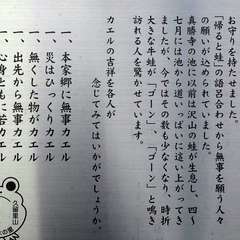 お守りを持たせました。
「帰ると蛙」の語呂合わせから無事を願う人々
の願いが込められていました。
真勝寺の池に以前は沢山の蛙が生息し、四～
七月には池から道いっぱいに這い上がってき
ましたが、今ではその数も少なくなり、時折
大きな牛蛙が「ゴーン」、「ゴーン」と鳴き
訪れる人を驚かせています。
カエルの吉祥を各人が
念じてみてはいかがでしょうか。
一、本家郷に無事カエル
一、災はひっくりカエル
一、無くした物がカエル
一、出先から無事カエル
一、心身ともに若カエル
久留里山